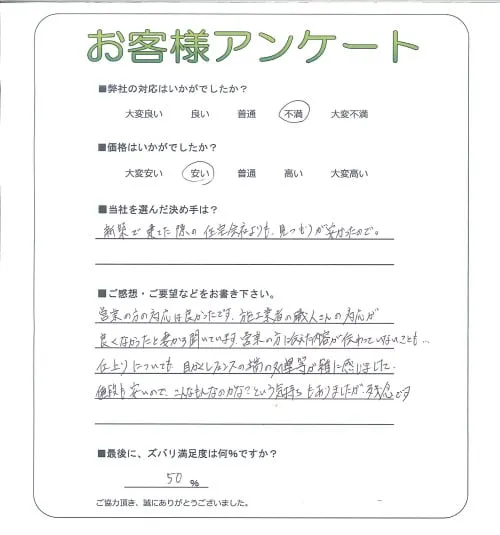 お客様アンケート
■弊社の対応はいかがでしたか？
大変良い 良い 普通 不満 大変不満
■価格はいかがでしたか？
大変安い 安い 普通 高い 大変高い
■当社を選んだ決め手は？
新築で建てた際の住宅会社よりも、見つもりが安かったので。
■ご感想・ご要望などをお書き下さい。
営業の方の対応は良かったです。施工業者の職人さんの対応が
良くなかったと妻から聞いています。営業の方に伝えた内容が伝わっていないことも…
仕上りについても 目かくしフェンスの端の処理等が雑に感じました。
値段も安いので、こんなもんなのかな？という気持ちもありましたが、残念です
■最後に、ズバリ満足度は何％ですか？
50 ％
ご協力頂き、誠にありがとうございました。